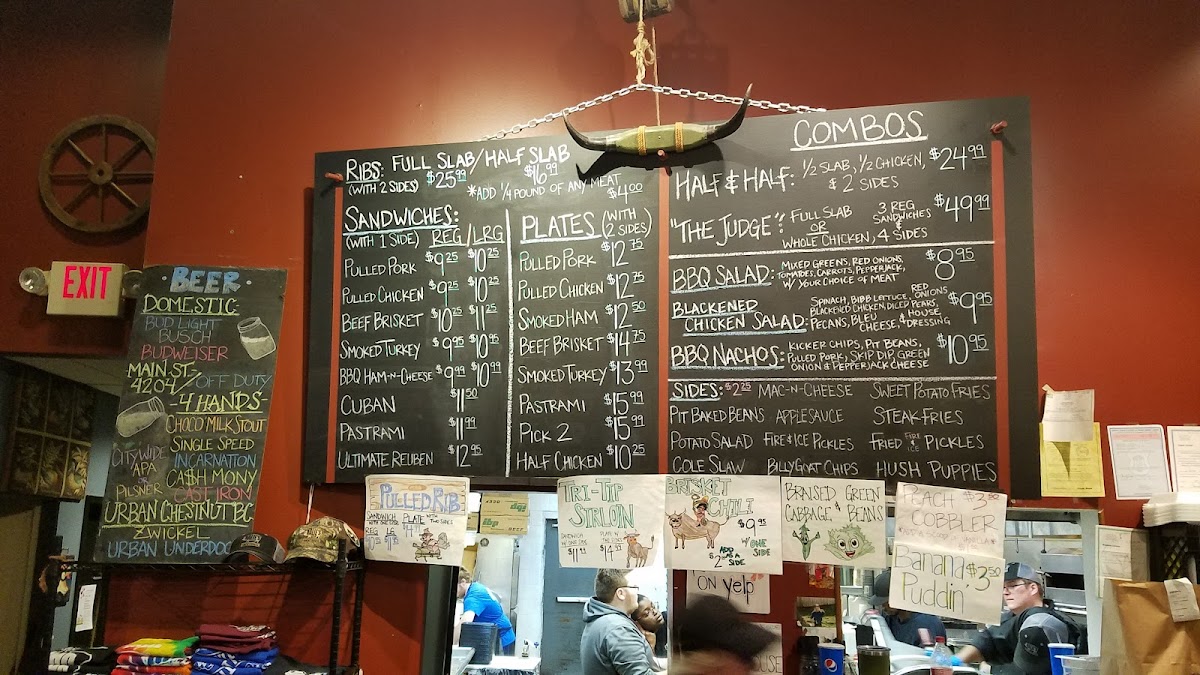 EXIT
BEER
DOMESTIC
BUD LIGHT
BUSCH
BUDWEISER
MAIN ST.
4204 / OFF DUTY
-4 HANDS-
CHOCO MILK STOUT
SINGLE SPEED
CITYWIDE INCARNATION
APA CA$H MONY
OR
PILSNER CAST IRON
URBAN CHESTNUT BC
ZWICKEL
URBAN UNDERDOG
RIBS: FULL SLAB/HALF SLAB
(WITH 2 SIDES) $25.99 $16.99
*ADD 1/4 POUND OF ANY MEAT
$4.00
SANDWICHES:
(WITH 1 SIDE) REG/LRG
PULLED PORK $9.25 $10.25
PULLED CHICKEN $9.25 $10.25
BEEF BRISKET $10.25 $11.25
SMOKED TURKEY $9.95 $10.95
BBQ HAM-N-CHEESE $9.99 $10.99
CUBAN $11.50
PASTRAMI $11.99
ULTIMATE REUBEN $12.95
PLATES (WITH 2 SIDES)
PULLED PORK $12.75
PULLED CHICKEN $12.75
SMOKED HAM $12.50
BEEF BRISKET $14.75
SMOKED TURKEY $13.99
PASTRAMI $15.99
PICK 2 $15.99
HALF CHICKEN $10.25
COMBOS
HALF & HALF: 1/2 SLAB, 1/2 CHICKEN, $24.99
& 2 SIDES
"THE JUDGE": FULL SLAB 3 REG SANDWICHES $49.99
OR &
WHOLE CHICKEN, 4 SIDES
BBQ SALAD: MIXED GREENS, RED ONIONS, $8.95
TOMATOES, CARROTS, PEPPERJACK,
W/ YOUR CHOICE OF MEAT
BLACKENED CHICKEN SALAD: SPINACH, BIBB LETTUCE, RED ONIONS, $9.95
BLACKENED CHICKEN, DICED PEARS,
PECANS, BLEU CHEESE, & HOUSE DRESSING
BBQ NACHOS: KICKER CHIPS, PIT BEANS, $10.95
PULLED PORK, SKIP DIP, GREEN
ONION & PEPPERJACK CHEESE
SIDES: $2.25 MAC-N-CHEESE SWEET POTATO FRIES
PIT BAKED BEANS APPLESAUCE STEAK-FRIES
POTATO SALAD FIRE & ICE PICKLES FRIED FIRE & ICE PICKLES
COLE SLAW BILLYGOAT CHIPS HUSH PUPPIES
PULLED RIB
SANDWICH PLATE
WITH ONE SIDE
REG
TRI-TIP
SIRLOIN
SANDWICH PLATE
$11.99 $14
BRISKET
CHILI
$9.95
W/ ONE
SIDE
ADD
AS A
SIDE
$2
BRAISED GREEN
CABBAGE & BEANS
PEACH $3.50
COBBLER
BANANA $3.50
PUDDIN'
ON yelp
HOUSE
pepsi